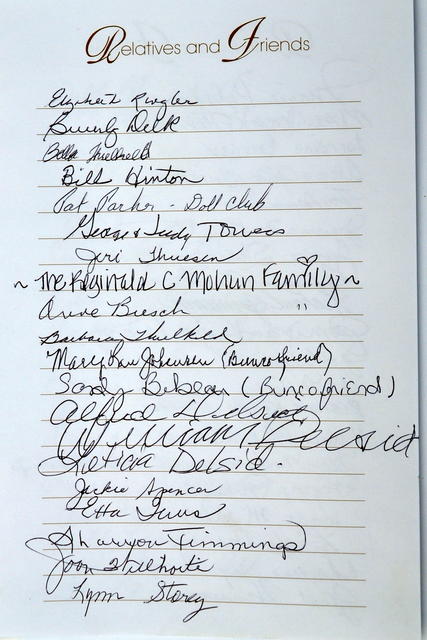 Relatives and Friends
Elizabeth Ringler
Beverly Delk
Bella Thellkeld
Bill Hinton
Pat Parker - Doll club
George & Judy Towers
Jeri Thuesen
~ The Reginald C Mohun Family ~
Anne Biesch "
Barbara Thelkeld
Mary Lou Johnson (Bunco friend)
Sandy Bebeau (Bunco friend)
Alfred Delsid
William Delsid
Leticia Delsid.
Jackie Spencer
Etta
Sharyon Timmings
Joan Wilhoite
Lynn Storey